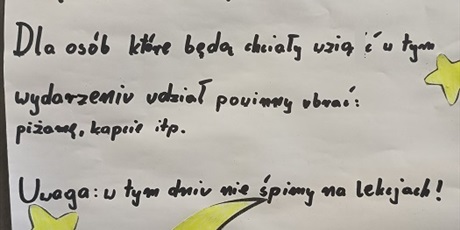 Dla osób które będą chciały uzią ć u tym
wydarzeniu udział pouinny ubrać:
piżamę, kapcie itp.
Uwaga: u tym dniu nie śpimy na lekcjach!